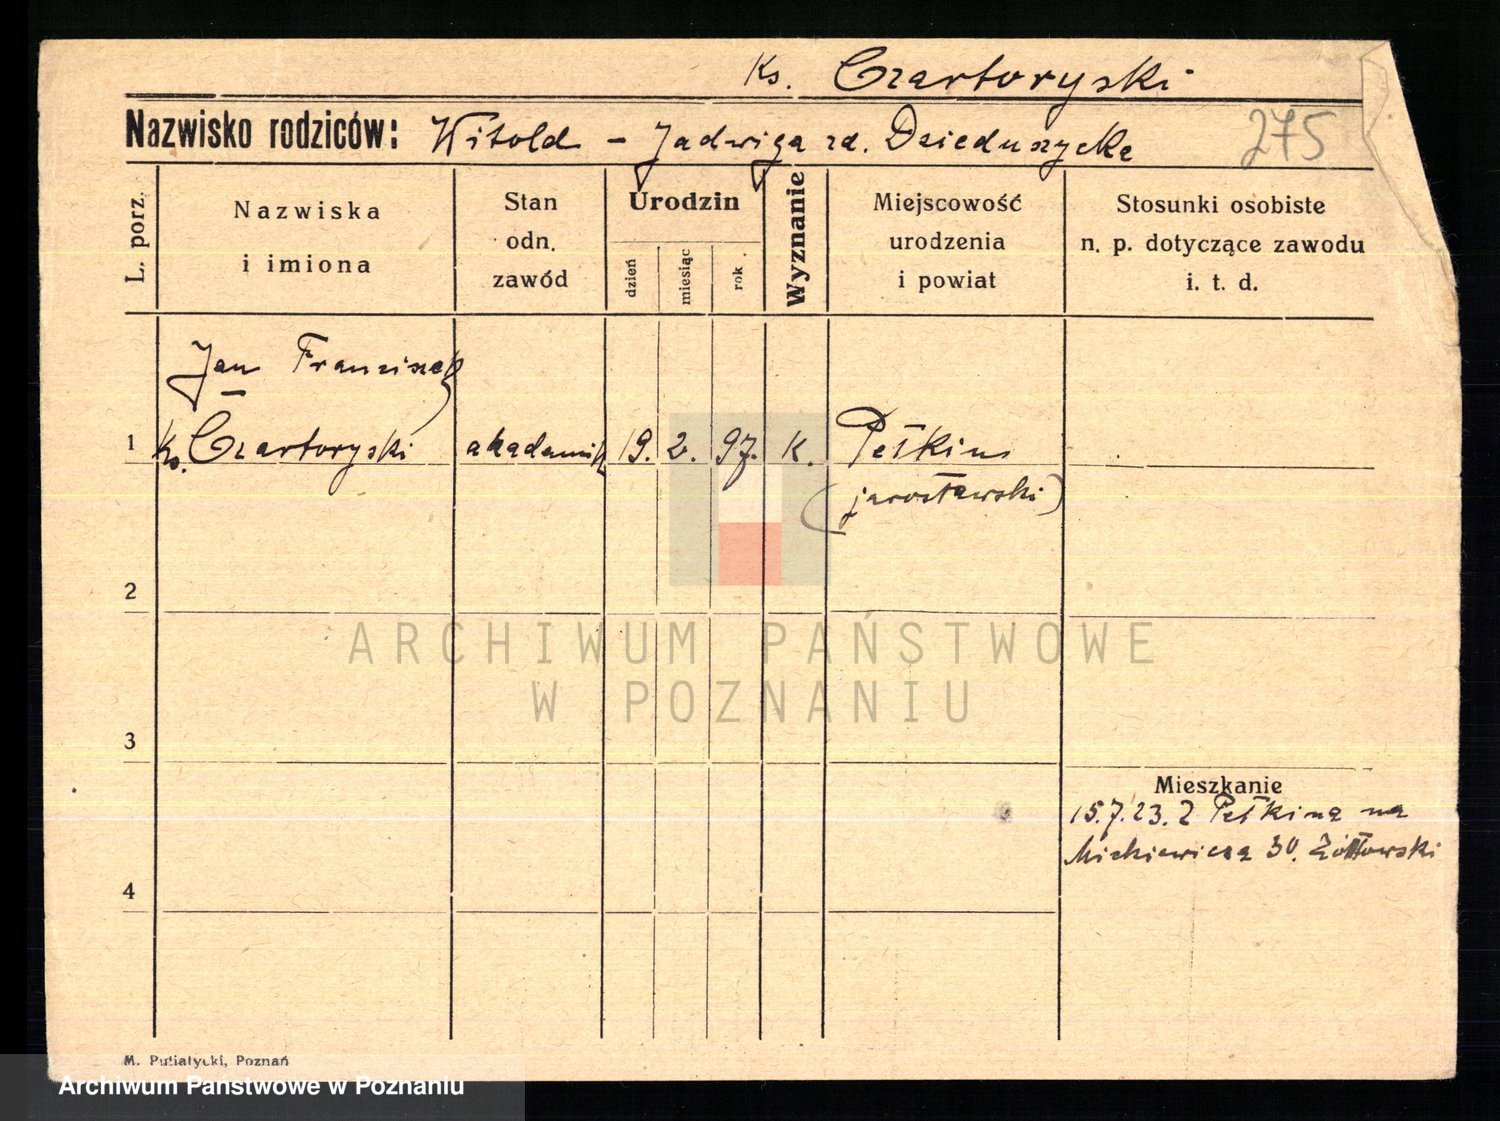 Ks. Czartoryski
Nazwisko rodziców: Witold - Jadwiga zd. Dzieduszycka
275
L. porz.
Nazwiska
i imiona
Stan
odn.
zawód
Urodzin
dzień
miesiąc
rok.
Wyznanie
Miejscowość
urodzenia
i powiat
Stosunki osobiste
n. p. dotyczące zawodu
i. t. d.
Jan Franciszek
1 Ks. Czartoryski akademik 19. 2. 97. K. Pełkinie
(jarosławski)
2
ARCHIWUM PAŃSTWOWE
W POZNANIU
3
Mieszkanie
15.7.23. Z Pełkina na
Mickiewicza 30. Żółtowski
4
M. Putiatycki, Poznań
Archiwum Państwowe w Poznaniu